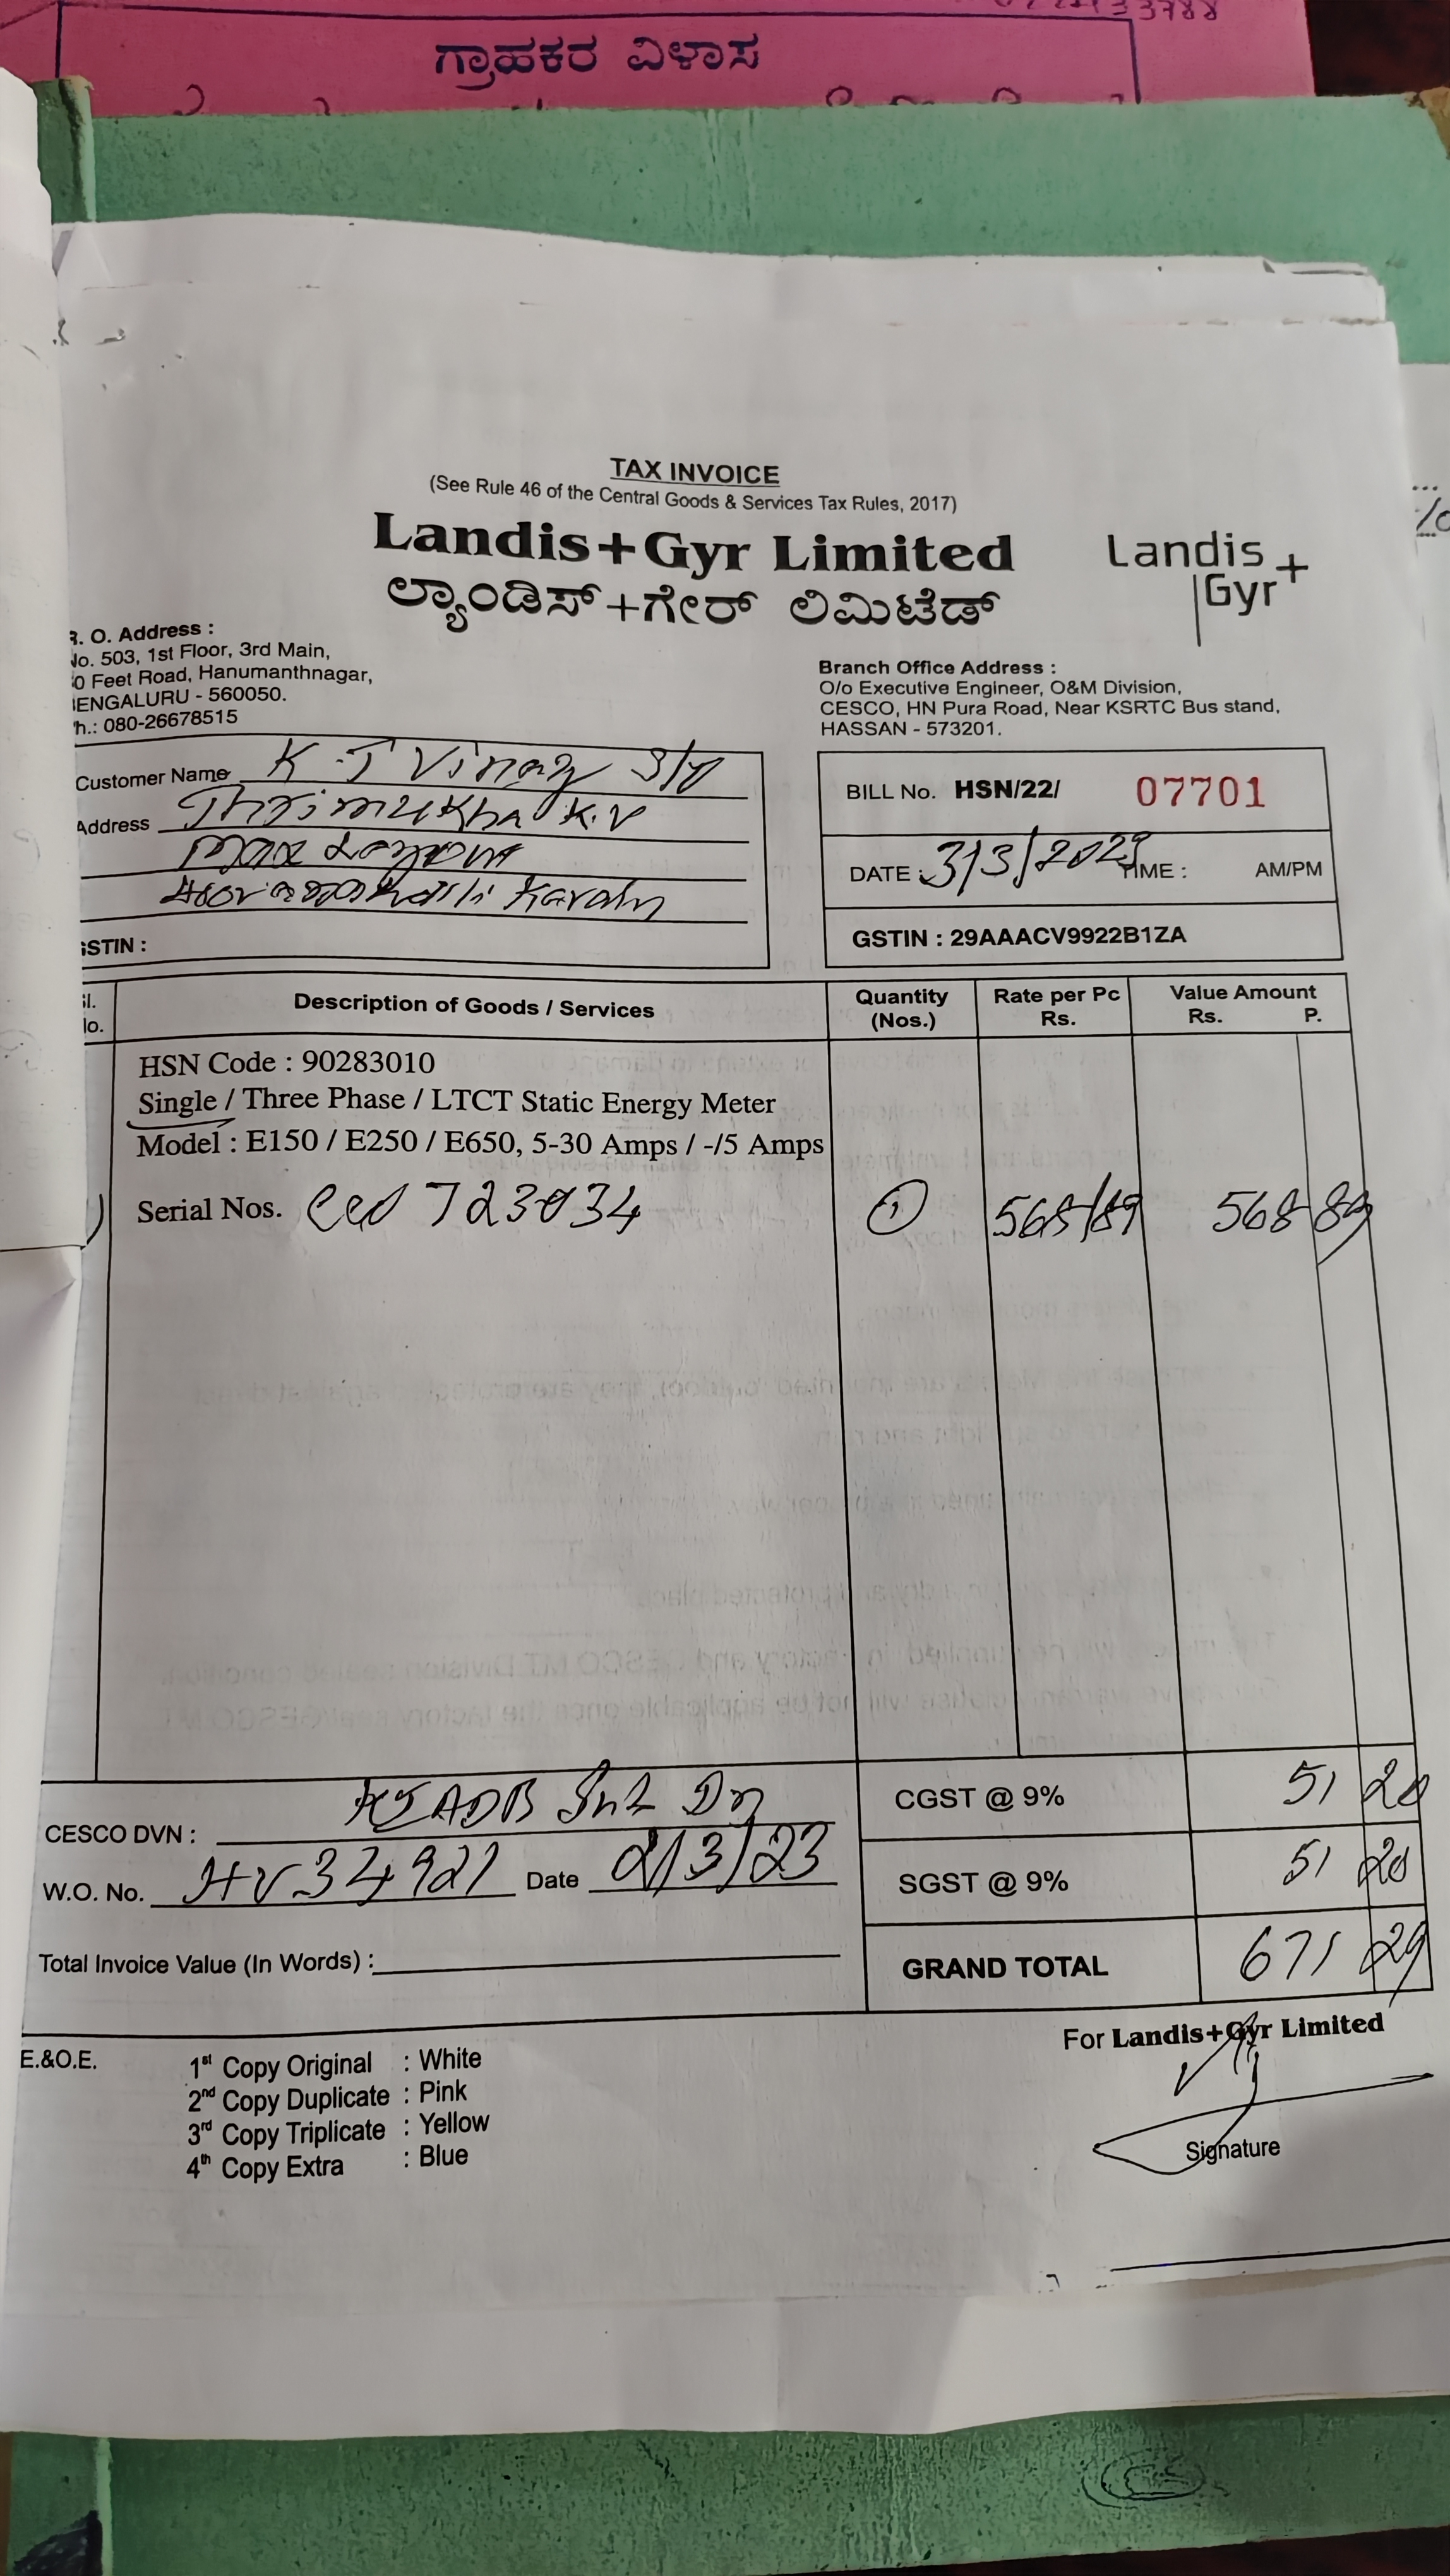 ಗ್ರಾಹಕರ ವಿಳಾಸ
TAX INVOICE
(See Rule 46 of the Central Goods & Services Tax Rules, 2017)
Landis+Gyr Limited
ಲ್ಯಾಂಡಿಸ್+ಗೇರ್ ಲಿಮಿಟೆಡ್
Landis
Gyr+
R. O. Address :
No. 503, 1st Floor, 3rd Main,
0 Feet Road, Hanumanthnagar,
BENGALURU - 560050.
Ph.: 080-26678515
Branch Office Address :
O/o Executive Engineer, O&M Division,
CESCO, HN Pura Road, Near KSRTC Bus stand,
HASSAN - 573201.
Customer Name K.J Vinay S/o
Address Thrimukha K.V
GSTIN :
BILL No. HSN/22/ 07701
DATE : 3/3/2023 TIME : AM/PM
GSTIN : 29AAACV9922B1ZA
Sl. No. Description of Goods / Services Quantity (Nos.) Rate per Pc Rs. Value Amount Rs. P.
HSN Code : 90283010
Single / Three Phase / LTCT Static Energy Meter
Model : E150 / E250 / E650, 5-30 Amps / -/5 Amps
Serial Nos. 1 568/89 568 89
CGST @ 9% 51 20
CESCO DVN : KIADB Sub Dn
SGST @ 9% 51 20
W.O. No. Date 2/3/23
Total Invoice Value (In Words) :
GRAND TOTAL 671 29
For Landis+Gyr Limited
E.&O.E.
1st Copy Original : White
2nd Copy Duplicate : Pink
3rd Copy Triplicate : Yellow
4th Copy Extra : Blue
Signature